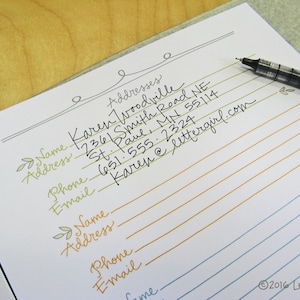 Addresses
Name Karen Woodville
Address 2361 Smith Road NE
St. Paul, MN 55114
Phone 651.555.2324
Email Karen@lettergirl.com
Name
Address
Phone
Email
Name
©2016